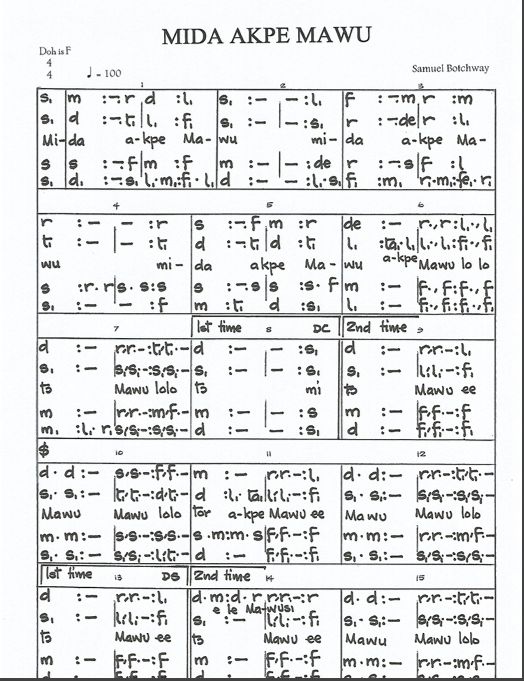 MIDA AKPE MAWU
Doh is F
4
4
♩ = 100
Samuel Botchway
1 2 3
s, | m :-.r | d :l, | s, :- | - :l, | f :-.m | r :m
s, | d :-.t, | l, :f, | s, :- | - :s, | r :-.de | r :l,
Mi- da a-kpe Ma- wu mi- da a-kpe Ma-
s | s :-.f | m :f | m :- | - :de | r :-.s | F :l
4 5 6
r :- | - :r | s :-.f | m :r | de :-
t, :- | - :t, | d :-.t, | d :t,
wu mi- da akpe Ma- wu a-kpe Mawu lo lo
s :r.r | s.s:s | s :-.s | s :s.f | m :-
s, :- | - :f | m :t, | d :s, | l, :-
7 1st time 8 DC 2nd time 9
d :- | r.r.-:t,.t,.- | d :- | - :s, | d :- | r.r.-:l,
s, :- | s,.s,.-:s,.s,.- | s, :- | - :s, | s, :- | l,.l,.-:f,
tɔ Mawu lolo tɔ mi tɔ Mawu ee
m :- | r.r.-:m.f.- | m :- | - :s | m :- | f.f.-:f
m, :l,.r, | s,.s,.-:s,.s,.- | d :- | - :s, | d :- | f,.f,.-:f,
$ 10 11 12
d.d:- | s.s.-:f.f.- | m :- | r.r.-:l, | d.d:- | r.r.-:t,.t,.-
s,.s,:- | t,.t,.-:d.t,.- | d :l,.ta, | l,.l,.-:f, | s,.s,:- | s,.s,.-:s,.s,.-
Mawu Mawu lolo tor a-kpe Mawu ee Mawu Mawu lolo
m.m:- | s.s.-:s.s.- | s.m:m.s | f.f.-:f | m.m:- | r.r.-:m.f.-
s,.s,:- | s,.s,.-:l,.t,.- | d :- | f,.f,.-:f, | s,.s,:- | s,.s,.-:s,.s,.-
1st time 13 DS 2nd time 14 15
d :- | r.r.-:l, | d.m:d.r | r.r.-:r | d.d:- | r.r.-:t,.t,.-
e le Ma-wusi
s, :- | l,.l,.-:f, | s, :- | l,.l,.-:f, | s,.s,:- | s,.s,.-:s,.s,.-
tɔ Mawu ee tɔ Mawu ee Mawu Mawu lolo
m :- | f.f.-:f | m :- | f.f.-:f | m.m:- | r.r.-:m.f.-